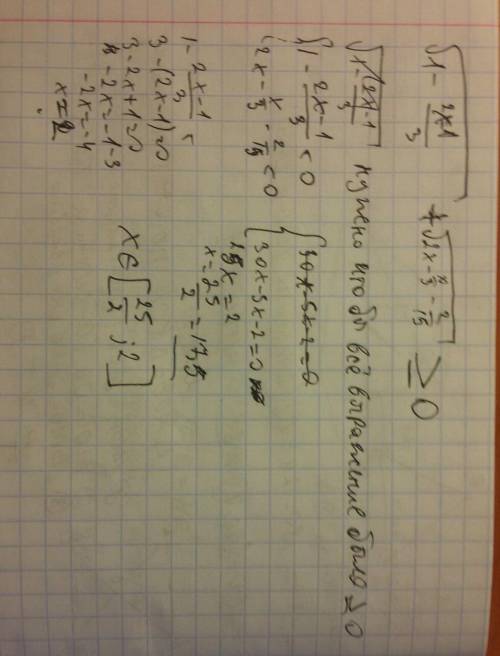 √1 - 2x-1/3 + √2x - x/3 - 2/15 ≥ 0
нужно чтобы всё выражение было ≥ 0
{1 - 2x-1/3 < 0
2x - x/3 - 2/15 < 0
{30x-5x-2=0
30x-5x-2=0
x = 2
x = 25/2 = 17,5
1 - 2x-1/3 <
3 - (2x-1)=0
3-2x+1=0
-2x=-1-3
-2x=-4
x=2
x ∈ [25/2 ; 2]